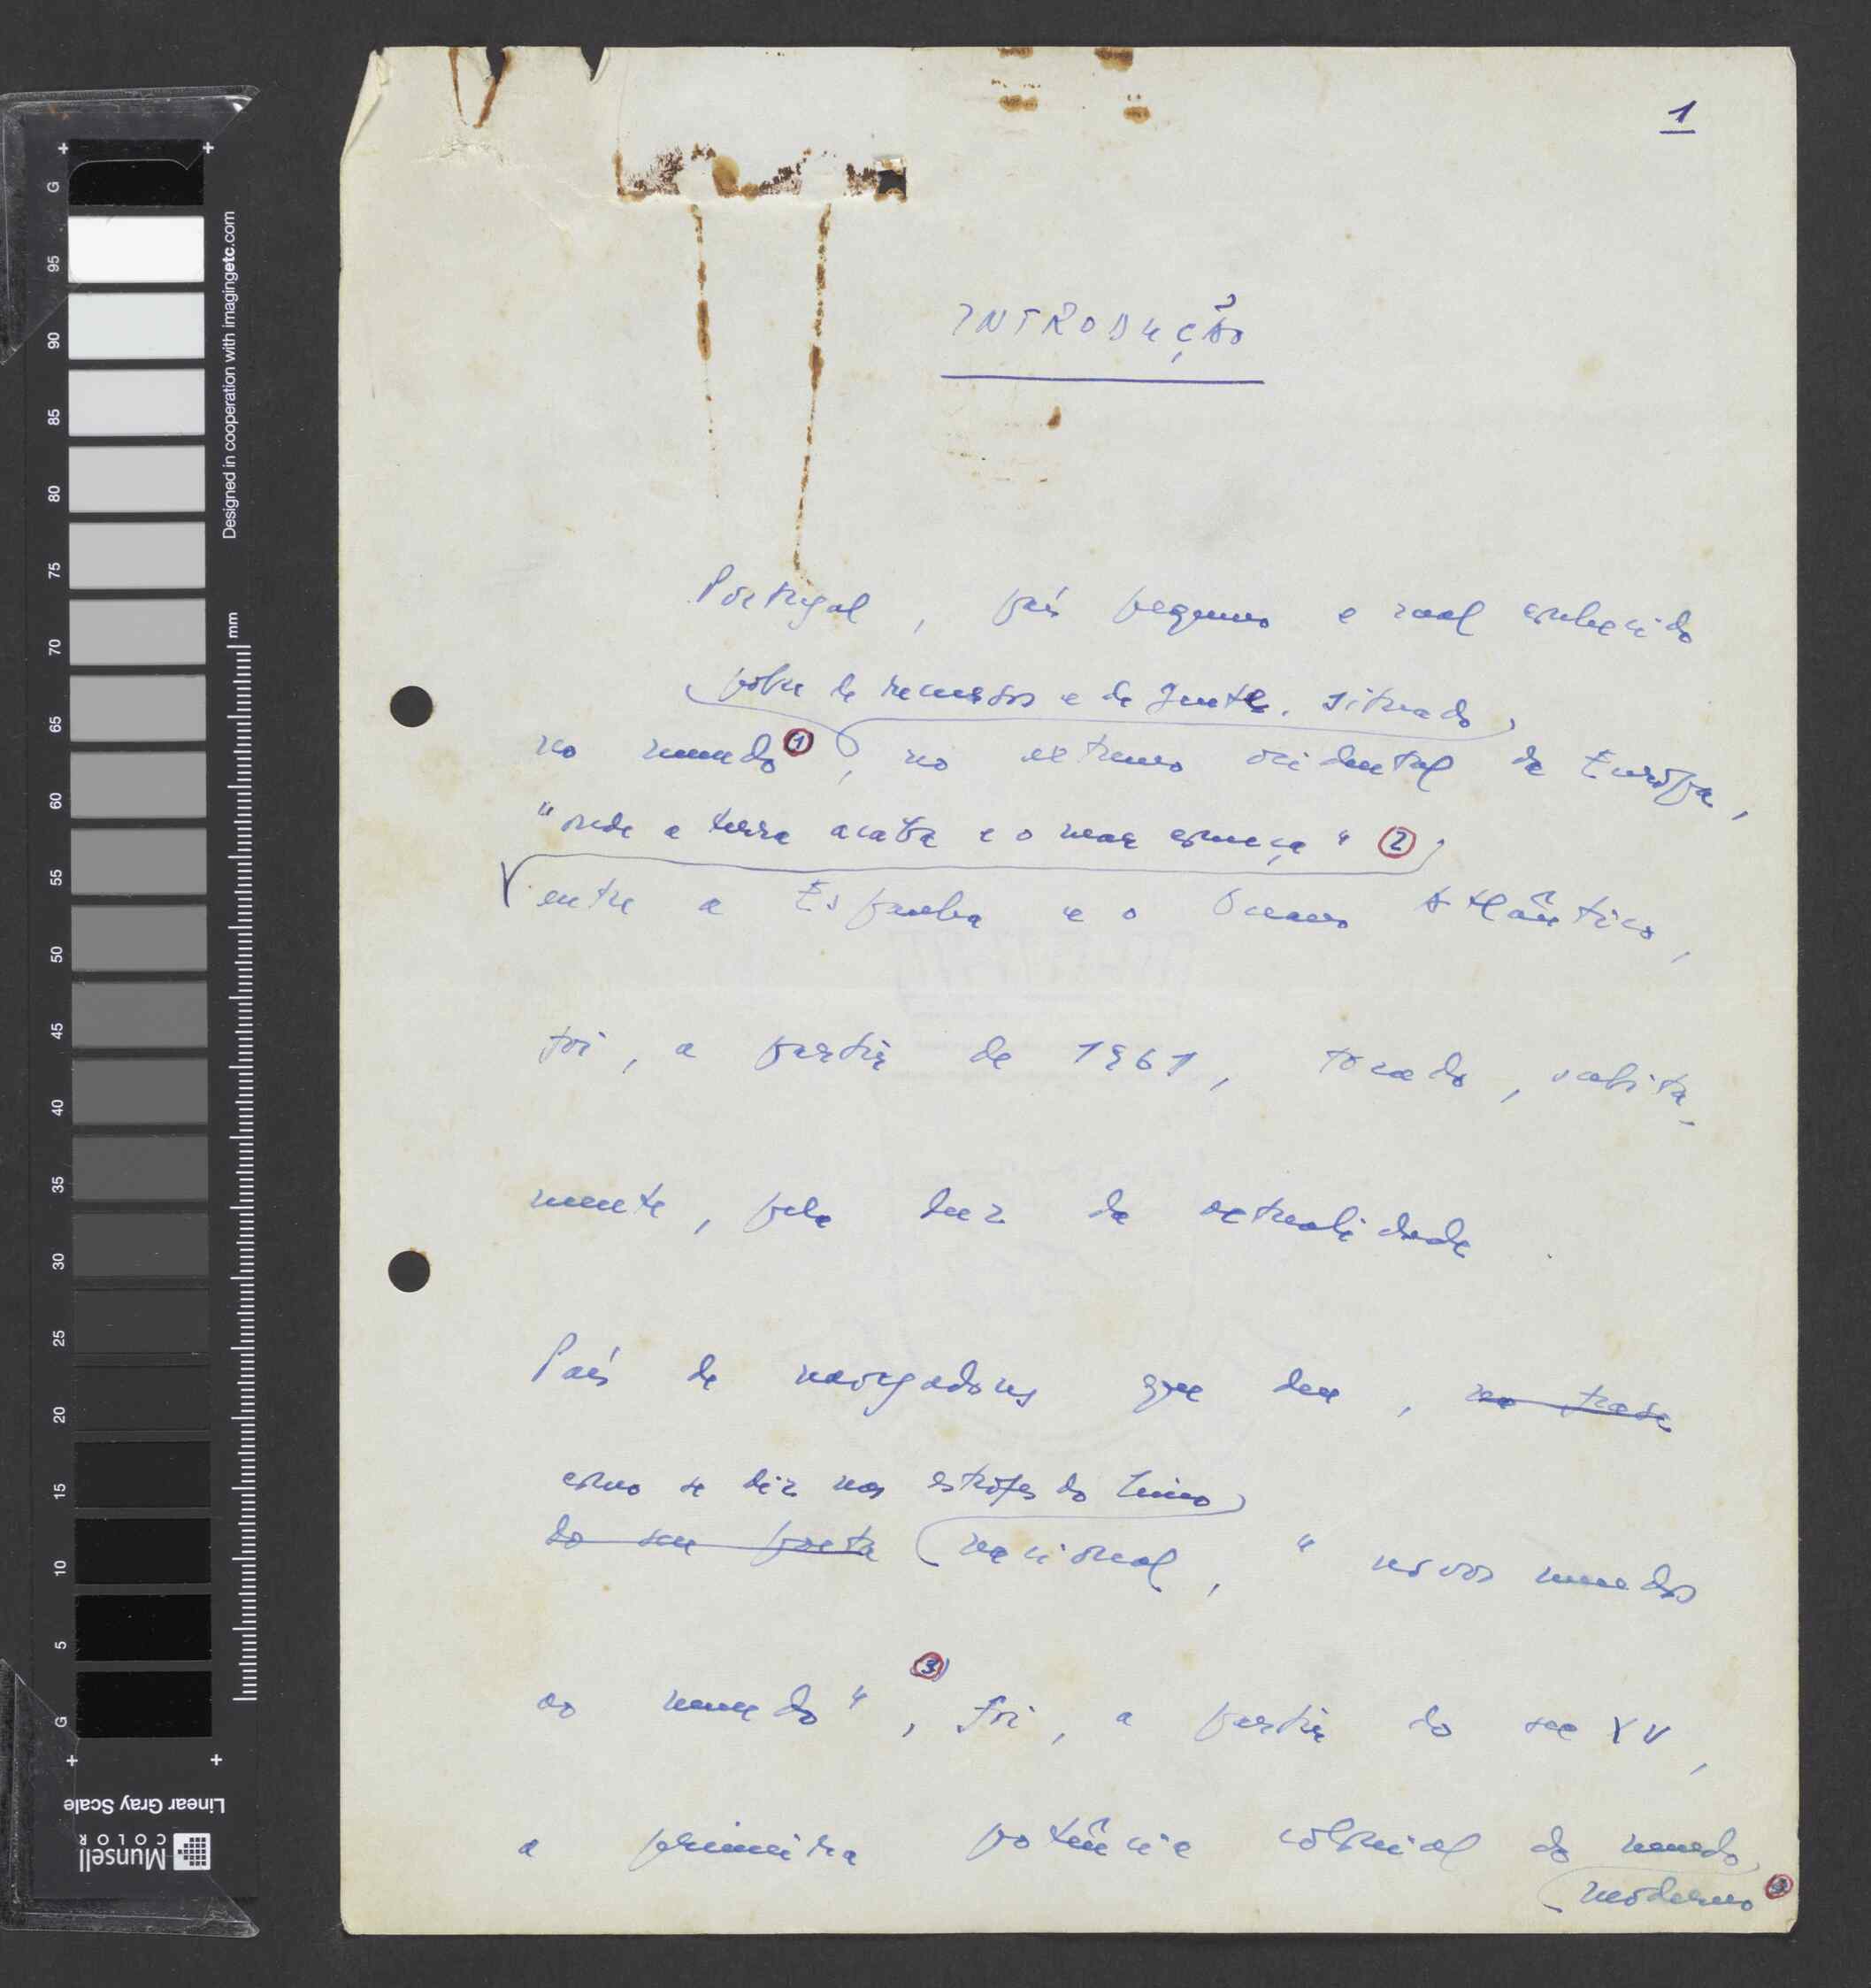 1
INTRODUÇÃO
Portugal, país pequeno e mal conhecido
pobre de recursos e de gente, situado
no mundo ①, no extremo ocidental da Európa,
"onde a terra acaba e o mar começa" ②
entre a Espanha e o Oceano Atlântico,
foi, a partir de 1961, tocado, subita-
mente, pela luz da actualidade.
País de navegadores que deu, na frase
como se diz nas estrofes do hino
do seu poeta nacional, "novos mundos
ao mundo" ③, foi, a partir do sec XV,
a primeira potência colonial do mundo
moderno
G
95
90
85
80
75
70
65
60
55
50
45
40
35
30
25
20
15
10
5
G
Designed in cooperation with imagingetc.com
mm
Linear Gray Scale
Munsell
COLOR